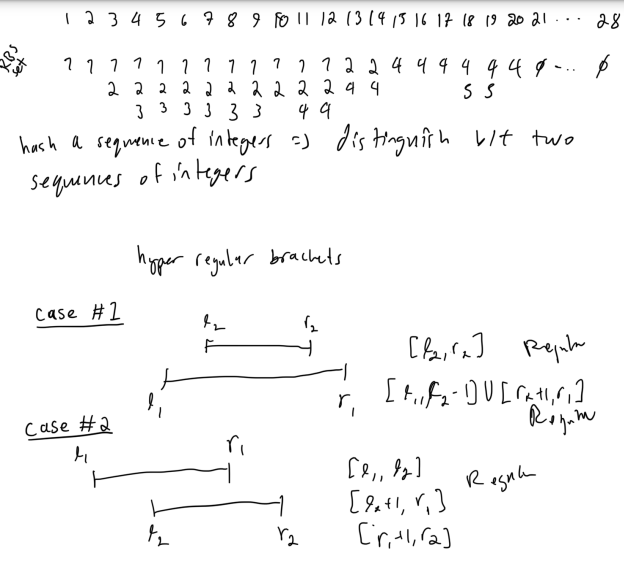 1 2 3 4 5 6 7 8 9 10 11 12 13 14 15 16 17 18 19 20 21 ... 28
RBS set
1 1 1 1 1 1 1 1 1 1 1 1 2 2 4 4 4 4 4 4 ∅ ... ∅
2 2 2 2 2 2 2 2 2 2 4 4 5 5
3 3 3 3 3 3 4 4
hash a sequence of integers => distinguish b/t two
sequences of integers
hyper regular brackets
case #1
l₂ r₂
[l₂, r₂] Regular
l₁ r₁
[l₁, l₂-1] U [r₂+1, r₁]
Regular
case #2
l₁ r₁
[l₁, l₂] Regular
[l₂+1, r₁]
l₂ r₂
[r₁+1, r₂]